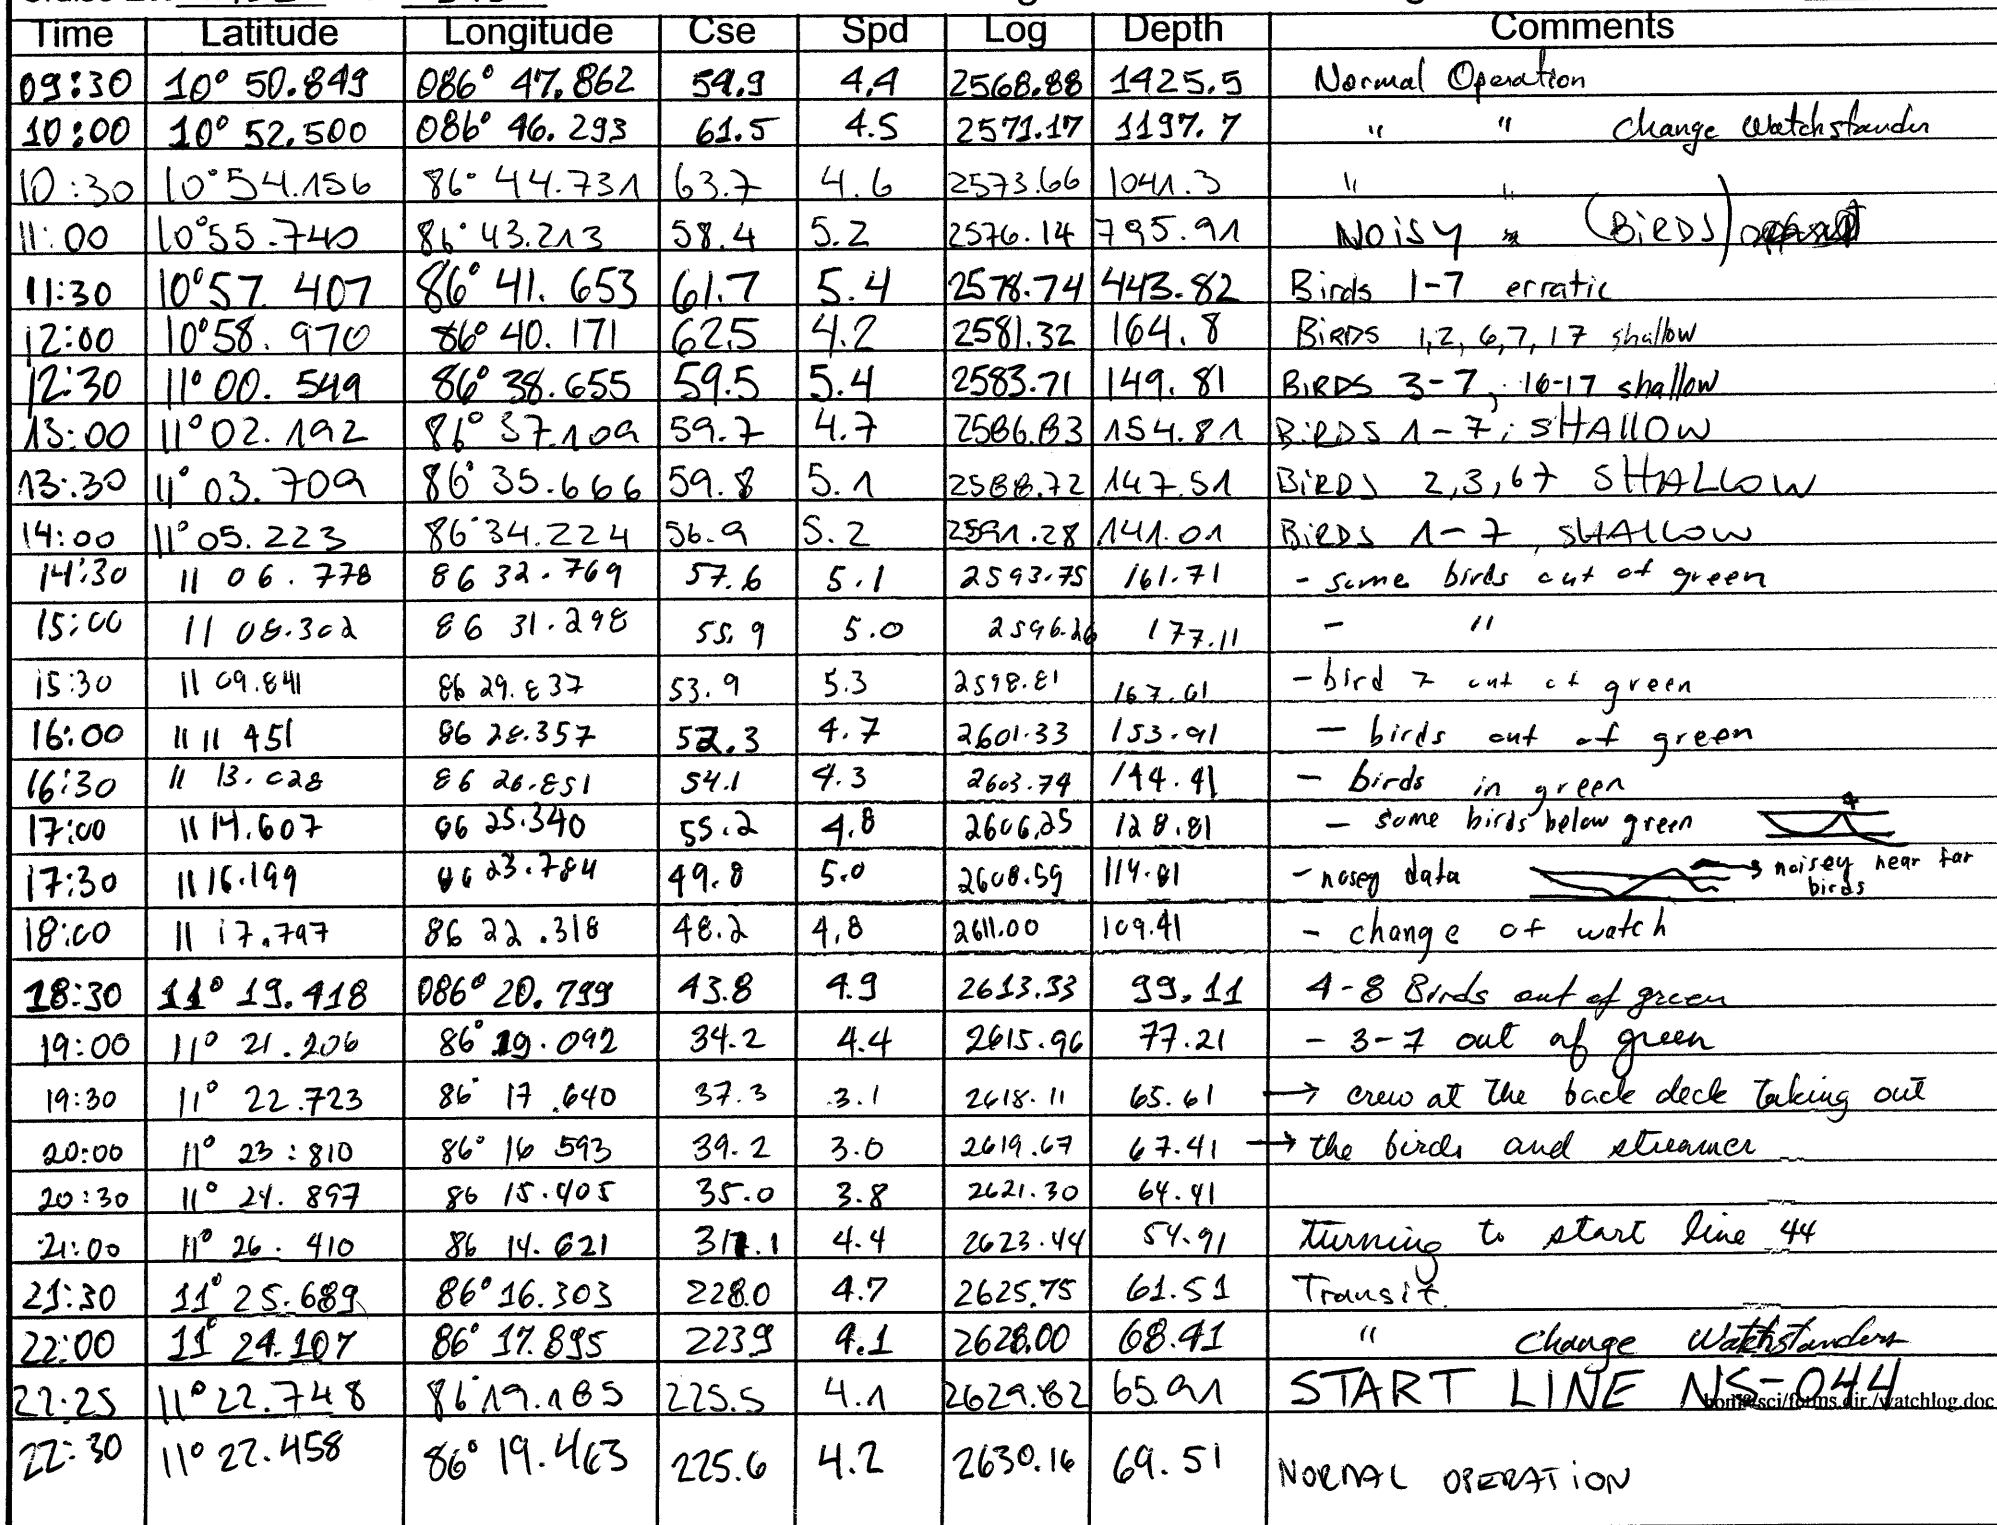 Time Latitude Longitude Cse Spd Log Depth Comments
09:30 10° 50.849 086° 47.862 54.9 4.4 2568.88 1425.5 Normal Operation
10:00 10° 52.500 086° 46.293 61.5 4.5 2571.17 1197.7 " " Change Watchstander
10:30 10°54.156 86° 44.731 63.7 4.6 2573.66 1041.3 " "
11:00 10°55.740 86° 43.213 58.4 5.2 2576.14 795.91 NOISY (BIRDS)
11:30 10°57.407 86° 41.653 61.7 5.4 2578.74 443.82 Birds 1-7 erratic
12:00 10°58.970 86° 40.171 62.5 4.2 2581.32 164.8 BIRDS 1,2,6,7,17 shallow
12:30 11° 00.549 86° 38.655 59.5 5.4 2583.71 149.81 BIRDS 3-7, 16-17 shallow
13:00 11° 02.192 86° 37.109 59.7 4.7 2586.83 154.81 BIRDS 1-7, SHALLOW
13:30 11° 03.709 86° 35.666 59.8 5.1 2588.72 147.51 BIRDS 2,3,67 SHALLOW
14:00 11° 05.223 86° 34.224 56.9 5.2 2591.28 141.01 BIRDS 1-7, SHALLOW
14:30 11 06.778 86 32.769 57.6 5.1 2593.75 161.71 - some birds out of green
15:00 11 08.302 86 31.298 55.9 5.0 2596.26 177.11 - "
15:30 11 09.841 86 29.837 53.9 5.3 2598.81 167.61 - bird 7 out of green
16:00 11 11 451 86 28.357 52.3 4.7 2601.33 153.91 - birds out of green
16:30 11 13.028 86 26.851 54.1 4.3 2603.74 144.41 - birds in green
17:00 11 14.607 86 25.340 55.2 4.8 2606.25 128.81 - some birds below green
17:30 11 16.199 86 23.784 49.8 5.0 2608.59 114.81 - nosey data → noisey near far birds
18:00 11 17.797 86 22.318 48.2 4.8 2611.00 109.41 - change of watch
18:30 11° 19.418 086° 20.799 43.8 4.9 2613.33 99.11 4-8 Birds out of green
19:00 11° 21.206 86° 19.092 34.2 4.4 2615.96 77.21 - 3-7 out of green
19:30 11° 22.723 86° 17.640 37.3 3.1 2618.11 65.61 → crew at the back deck taking out
20:00 11° 23:810 86° 16 593 39.2 3.0 2619.67 67.41 → the birds and streamer
20:30 11° 24.897 86 15.405 35.0 3.8 2621.30 64.41
21:00 11° 26.410 86 14.621 311.1 4.4 2623.44 54.91 turning to start line 44
21:30 11° 25.689 86° 16.303 228.0 4.7 2625.75 61.51 Transit.
22:00 11° 24.107 86° 17.895 223.9 4.1 2628.00 68.41 " Change Watchstanders
22:25 11° 22.748 86° 19.185 225.5 4.1 2629.82 65.91 START LINE NS-044
sci/forms.dir./watchlog.doc
22:30 11° 22.458 86° 19.463 225.6 4.2 2630.16 69.51 NORMAL OPERATION